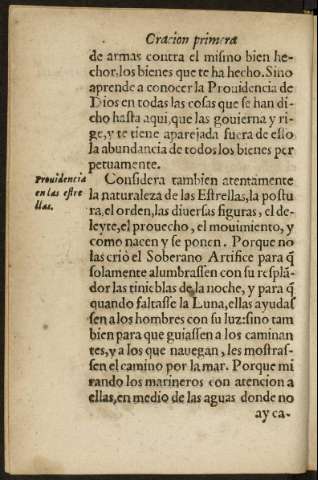 Oracion primera
de armas contra el mismo bien he-
chor, los bienes que te ha hecho. Sino
aprende a conocer la Prouidencia de
Dios en todas las cosas que se han di-
cho hasta aqui, que las gouierna y ri-
ge, y te tiene aparejada fuera de esso
la abundancia de todos los bienes per
petuamente.
Prouidencia
en las estre
llas.
Considera tambien atentamente
la naturaleza de las Estrellas, la postu
ra, el orden, las diuersas figuras, el de-
leyte, el prouecho, el mouimiento, y
como nacen y se ponen. Porque no
las criò el Soberano Artifice para q̃
solamente alumbrassen con su resplã-
dor las tinieblas de la noche, y para q̃
quando faltasse la Luna, ellas ayudas
sen a los hombres con su luz: sino tam
bien para que guiassen a los caminan
tes, y a los que nauegan, les mostras-
sen el camino por la mar. Porque mi
rando los marineros con atencion a
ellas, en medio de las aguas donde no
ay ca-